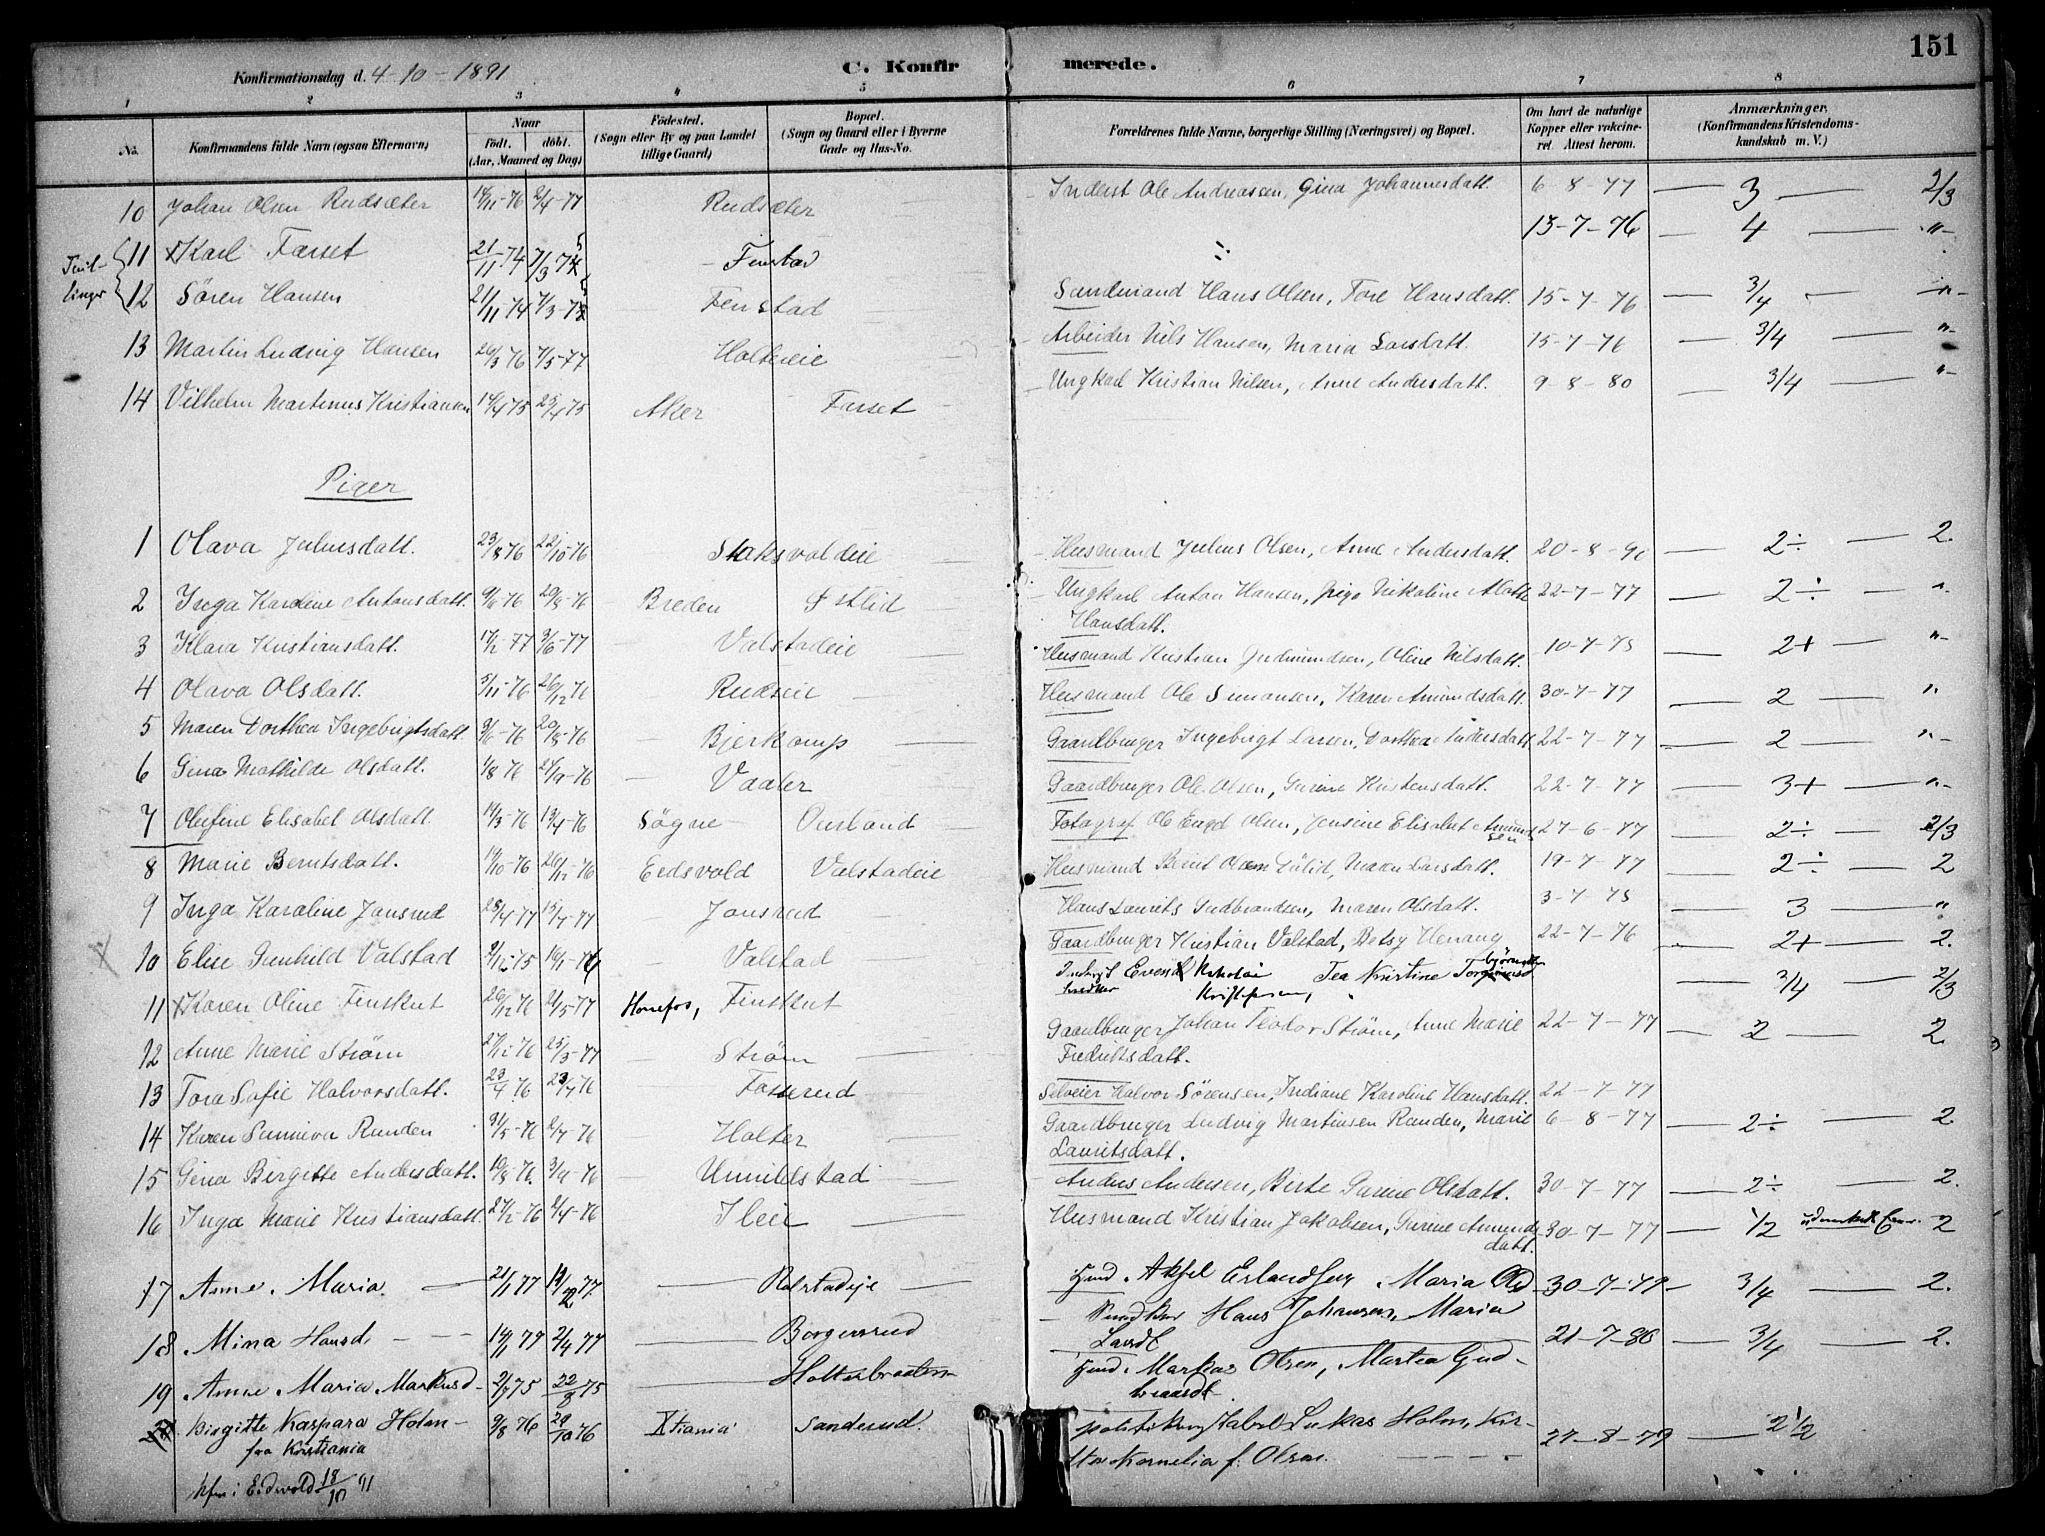 151
Konfirmationsdag d. 4-10-1891 C. Konfir merede.
1 2 3 4 5 6 7 8
No. Konfirmandens fulde Navn (ogsaa Efternavn) Naar født. døbt. (Aar, Maaned og Dag) Fødested. (Sogn eller By og paa Landet tillige Gaard) Bopæl. (Sogn og Gaard eller i Byerne Gade og Hus-No. Forældrenes fulde Navne, borgerlige Stilling (Næringsvei) og Bopæl. Om havt de naturlige Kopper eller vakcineret. Attest herom. Anmærkninger. (Konfirmandens Kristendomskundskab m. V.)
10 Johan Olsen Rudsæter 2/4-77 Rudsæter Inderst Ole Andreassen, Gina Johannesdatt. 6-8-77 3 2/3
Tvillinger
11 Karl Farset 21/11 74 7/3 75 Fenstad 13-7-76 4 "
12 Sören Hansen 21/11 74 7/3-75 Fenstad Sandmand Hans Olsen, Tore Hansdatt. 15-7-76 3/4 "
13 Martin Ludvig Hansen 26/3 76 7/5-77 Holtereie Arbeider Nils Hansen, Maria Larsdatt. 15-7-76 3/4 "
14 Vilhelm Martinus Kristiansen 25/4 75 Aker Farset Ungkarl Kristian Nilsen, Anne Andersdatt. 9-8-80 3/4 "
Piger
1 Olava Juliusdatt. 23/8 76 22/10-76 Husmand Julius Olsen, Anne Andersdatt. 20-8-90 2÷ 2.
2 Inga Karoline Antonsdatt. 9/6-76 20/8-76 Breden Østlid Ungkarl Anton Hansen, pige Nikoline
Hansdatt. 22-7-77 2÷ "
3 Klara Kristiansdatt. 17/2 77 3/6-77 Valstadeie Husmand Kristian Gudmundsen, Oline Nilsdatt. 10-7-75 2+ "
4 Olava Olsdatt. 5/11-76 26/12 76 Rudseie Husmand Ole Simonsen, Karen Amundsdatt. 30-7-77 2 "
5 Maren Dorthea Ingebrigtsdatt. 9/6-76 20/8-76 Bjerkomp Gaardbruger Ingebrigt Larsen, Dorthea Andersdatt. 22-7-77 2 "
6 Gina Mathilde Olsdatt. 1/8 76 Vaaler Gaardbruger Ole Olsen, Gurine Kristensdatt. 22-7-77 3+ "
7 Olufine Elisabet Olsdatt. 14/3-76 13/4-76 Søgne Ourland Fotograf Ole Engel Olsen, Jensine Elisabet Amundsen 27-6-77 2÷ 2/3
8 Marie Berntsdatt. 19/10 76 26/12 76 Eidsvold Valstadeie Husmand Bernt Olsen Dulid, Maren Larsdatt. 19-7-77 2÷ 2
9 Inga Karoline Jonsrud 28/4 77 15/7-77 Jonsrud Hans Laurits Gudbrandsen, Maren Olsdatt. 3-7-75 3 "
10 Elise Gunhild Valstad 9/12-75 16/1-76 Valstad Gaardbruger Kristian Valstad, Betsy Herang 22-7-76 2+ 2.
11 Karen Oline Finstknt 26/12 76 21/5-77 Honefos, Finstknt Evend Nikolai Kristofersen, Tea Kristine 3/4 2/3
12 Anne Marie Strøm 27/12 76 25/3-77 Strøm Gaardbruger Johan Teodor Strøm, Anne Marie
Fredriksdatt. 22-7-77 2 2
13 Tora Sofie Halvorsdatt. 23/4 76 23/7 76 Fosserud Selveier Halvor Sörensen, Indiane Karoline Hansdatt. 22-7-77
14 Karen Sunniva Runden 31/5-76 2/7 76 Holter Gaardbruger Ludvig Martinsen Runden, Marie
Lauritsdatt. 6-8-77 2÷ 2
15 Gina Birgitte Andersdatt. 10/8 76 Unnildstad Anders Andersen, Birte Gurine Olsdatt. 30-7-77 2÷ 2.
16 Inga Marie Kristiansdatt. 27/2 76 2/4-76 Ileie Husmand Kristian Jakobsen, Gurine Amunds
datt. 30-7-77 1/2 2
17 Anne Maria 21/1 77 Rolstadeje Hmd. Aksel Erlandsen, Maria 30-7-79 3/4 2.
18 Mina Hansd. 14/1 77 2/4 77 Borgersrud Hans Johansen, Maria
Larsdt 21-7-86 3/4 2.
19 Anne Maria Markusd. 2/7 75 22/8 75 Holterbraaten Hmd. Markus Olsen, Martea Gud-
brandsdt
20 Birgitte Kaspara Holm 9/8 76 29/10 76 Xtiania Sanderud Lukas Holm, Kir-
fra Kristiania sten Kornelia f. Olsen 27-8-79 2 1/2
kfm i Eidsvold 18/10 91